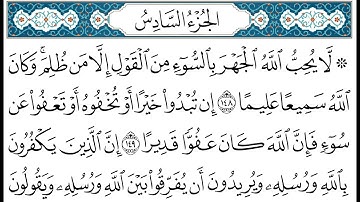 الجُزْءُ السَّادِسُ
۞ لَّا يُحِبُّ ٱللَّهُ ٱلْجَهْرَ بِٱلسُّوٓءِ مِنَ ٱلْقَوْلِ إِلَّا مَن ظُلِمَۚ وَكَانَ
ٱللَّهُ سَمِيعًا عَلِيمًا ١٤٨ إِن تُبْدُوا۟ خَيْرًا أَوْ تُخْفُوهُ أَوْ تَعْفُوا۟ عَن
سُوٓءٍ فَإِنَّ ٱللَّهَ كَانَ عَفُوًّا قَدِيرًا ١٤٩ إِنَّ ٱلَّذِينَ يَكْفُرُونَ
بِٱللَّهِ وَرُسُلِهِۦ وَيُرِيدُونَ أَن يُفَرِّقُوا۟ بَيْنَ ٱللَّهِ وَرُسُلِهِۦ وَيَقُولُونَ